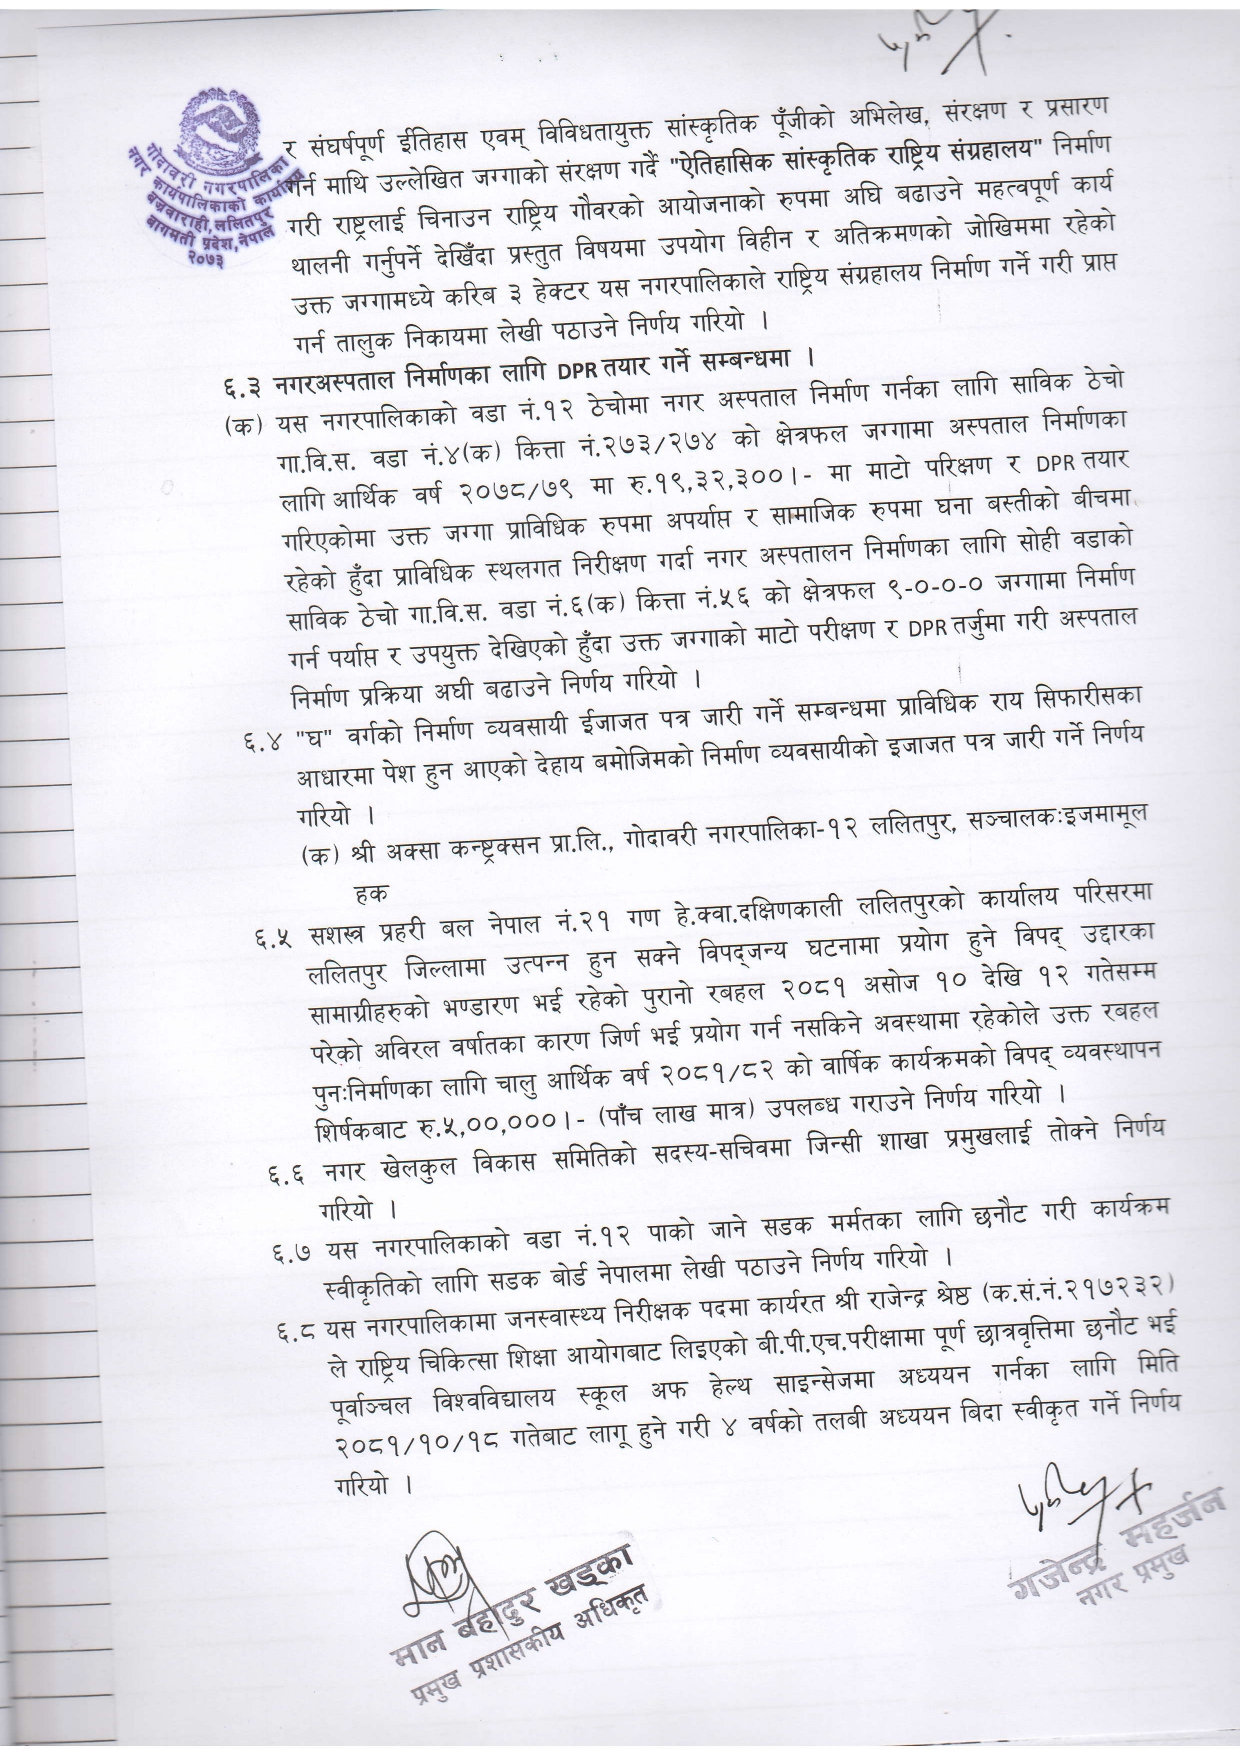 गोदावरी नगरपालिका
नगर कार्यपालिकाको कार्यालय
बज्रवाराही, ललितपुर
बागमती प्रदेश, नेपाल
२०७३
र संघर्षपूर्ण ईतिहास एवम् विविधतायुक्त सांस्कृतिक पूँजीको अभिलेख, संरक्षण र प्रसारण
गर्न माथि उल्लेखित जग्गाको संरक्षण गर्दै "ऐतिहासिक सांस्कृतिक राष्ट्रिय संग्रहालय" निर्माण
गरी राष्ट्रलाई चिनाउन राष्ट्रिय गौवरको आयोजनाको रुपमा अघि बढाउने महत्वपूर्ण कार्य
थालनी गर्नुपर्ने देखिँदा प्रस्तुत विषयमा उपयोग विहीन र अतिक्रमणको जोखिममा रहेको
उक्त जग्गामध्ये करिब ३ हेक्टर यस नगरपालिकाले राष्ट्रिय संग्रहालय निर्माण गर्ने गरी प्राप्त
गर्न तालुक निकायमा लेखी पठाउने निर्णय गरियो ।
६.३ नगरअस्पताल निर्माणका लागि DPR तयार गर्ने सम्बन्धमा ।
(क) यस नगरपालिकाको वडा नं.१२ ठेचोमा नगर अस्पताल निर्माण गर्नका लागि साविक ठेचो
गा.वि.स. वडा नं.४(क) कित्ता नं.२७३/२७४ को क्षेत्रफल जग्गामा अस्पताल निर्माणका
लागि आर्थिक वर्ष २०७८/७९ मा रु.१९,३२,३००।- मा माटो परिक्षण र DPR तयार
गरिएकोमा उक्त जग्गा प्राविधिक रुपमा अपर्याप्त र सामाजिक रुपमा घना बस्तीको बीचमा
रहेको हुँदा प्राविधिक स्थलगत निरीक्षण गर्दा नगर अस्पतालन निर्माणका लागि सोही वडाको
साविक ठेचो गा.वि.स. वडा नं.६(क) कित्ता नं.५६ को क्षेत्रफल ९-०-०-० जग्गामा निर्माण
गर्न पर्याप्त र उपयुक्त देखिएको हुँदा उक्त जग्गाको माटो परीक्षण र DPR तर्जुमा गरी अस्पताल
निर्माण प्रक्रिया अघी बढाउने निर्णय गरियो ।
६.४ "घ" वर्गको निर्माण व्यवसायी ईजाजत पत्र जारी गर्ने सम्बन्धमा प्राविधिक राय सिफारीसका
आधारमा पेश हुन आएको देहाय बमोजिमको निर्माण व्यवसायीको इजाजत पत्र जारी गर्ने निर्णय
गरियो ।
(क) श्री अक्सा कन्ष्ट्रक्सन प्रा.लि., गोदावरी नगरपालिका-१२ ललितपुर, सञ्चालकःइजमामूल
हक
६.५ सशस्त्र प्रहरी बल नेपाल नं.२१ गण हे.क्वा.दक्षिणकाली ललितपुरको कार्यालय परिसरमा
ललितपुर जिल्लामा उत्पन्न हुन सक्ने विपद्जन्य घटनामा प्रयोग हुने विपद् उद्दारका
सामाग्रीहरुको भण्डारण भई रहेको पुरानो रबहल २०८१ असोज १० देखि १२ गतेसम्म
परेको अविरल वर्षातका कारण जिर्ण भई प्रयोग गर्न नसकिने अवस्थामा रहेकोले उक्त रबहल
पुनःनिर्माणका लागि चालु आर्थिक वर्ष २०८१/८२ को वार्षिक कार्यक्रमको विपद् व्यवस्थापन
शिर्षकबाट रु.५,००,०००।- (पाँच लाख मात्र) उपलब्ध गराउने निर्णय गरियो ।
६.६ नगर खेलकुल विकास समितिको सदस्य-सचिवमा जिन्सी शाखा प्रमुखलाई तोक्ने निर्णय
गरियो ।
६.७ यस नगरपालिकाको वडा नं.१२ पाको जाने सडक मर्मतका लागि छनौट गरी कार्यक्रम
स्वीकृतिको लागि सडक बोर्ड नेपालमा लेखी पठाउने निर्णय गरियो ।
६.८ यस नगरपालिकामा जनस्वास्थ्य निरीक्षक पदमा कार्यरत श्री राजेन्द्र श्रेष्ठ (क.सं.नं.२१७२३२)
ले राष्ट्रिय चिकित्सा शिक्षा आयोगबाट लिइएको बी.पी.एच.परीक्षामा पूर्ण छात्रवृत्तिमा छनौट भई
पूर्वाञ्चल विश्वविद्यालय स्कूल अफ हेल्थ साइन्सेजमा अध्ययन गर्नका लागि मिति
२०८१/१०/१८ गतेबाट लागू हुने गरी ४ वर्षको तलबी अध्ययन बिदा स्वीकृत गर्ने निर्णय
गरियो ।
मान बहादुर खड्का
प्रमुख प्रशासकीय अधिकृत
गजेन्द्र महर्जन
नगर प्रमुख